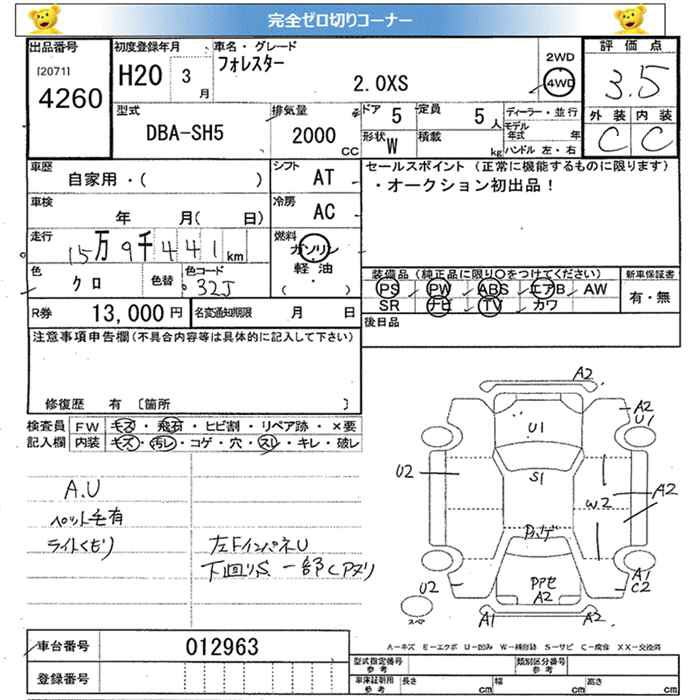 完全ゼロ切りコーナー
出品番号
[2071]
4260
初度登録年月
H20 3
月
車名・グレード
フォレスター
2.0XS
2WD
4WD
評価点
3.5
外装 内装
C C
型式
DBA-SH5
排気量
2000
CC
ドア 5
定員 5 人
形状 W
積載
kg
ディーラー・並行
モデル年式 年
ハンドル 左・右
車歴
自家用・( )
シフト AT
車検
年 月( 日)
冷房 AC
走行
15万9千441km
燃料
ガソリン
軽油
( ・ )
色
クロ
色替
色コード
32J
セールスポイント (正常に機能するものに限ります)
・オークション初出品!
装備品(純正品に限り○をつけてください)
PS PW ABS エアB AW
SR ナビ TV カワ
新車保証書
有・無
後日品
R券 13,000円
名変通知期限 月 日
注意事項申告欄(不具合内容等は具体的に記入して下さい)
修復歴 有 〔箇所 〕
検査員
記入欄
FW キズ・飛石・ヒビ割・リペア跡・×要
内装 キズ・汚レ・コゲ・穴・スレ・キレ・破レ
A.U
ペット毛有
ライトくもり
左FインパネU
下回りS 一部Cアヌリ
A2
A2
U1
U1
U2
S1
W2
A2
U2
A2
A1
C2
A1
A2
スペア
A－キズ E－エクボ U－凹み W－補修跡 S－サビ C－腐食 XX－交換済
車台番号
012963
登録番号
型式指定番号
参考
類別区分番号
参考
車庫証明用
参考
長さ cm
幅 cm
高さ cm